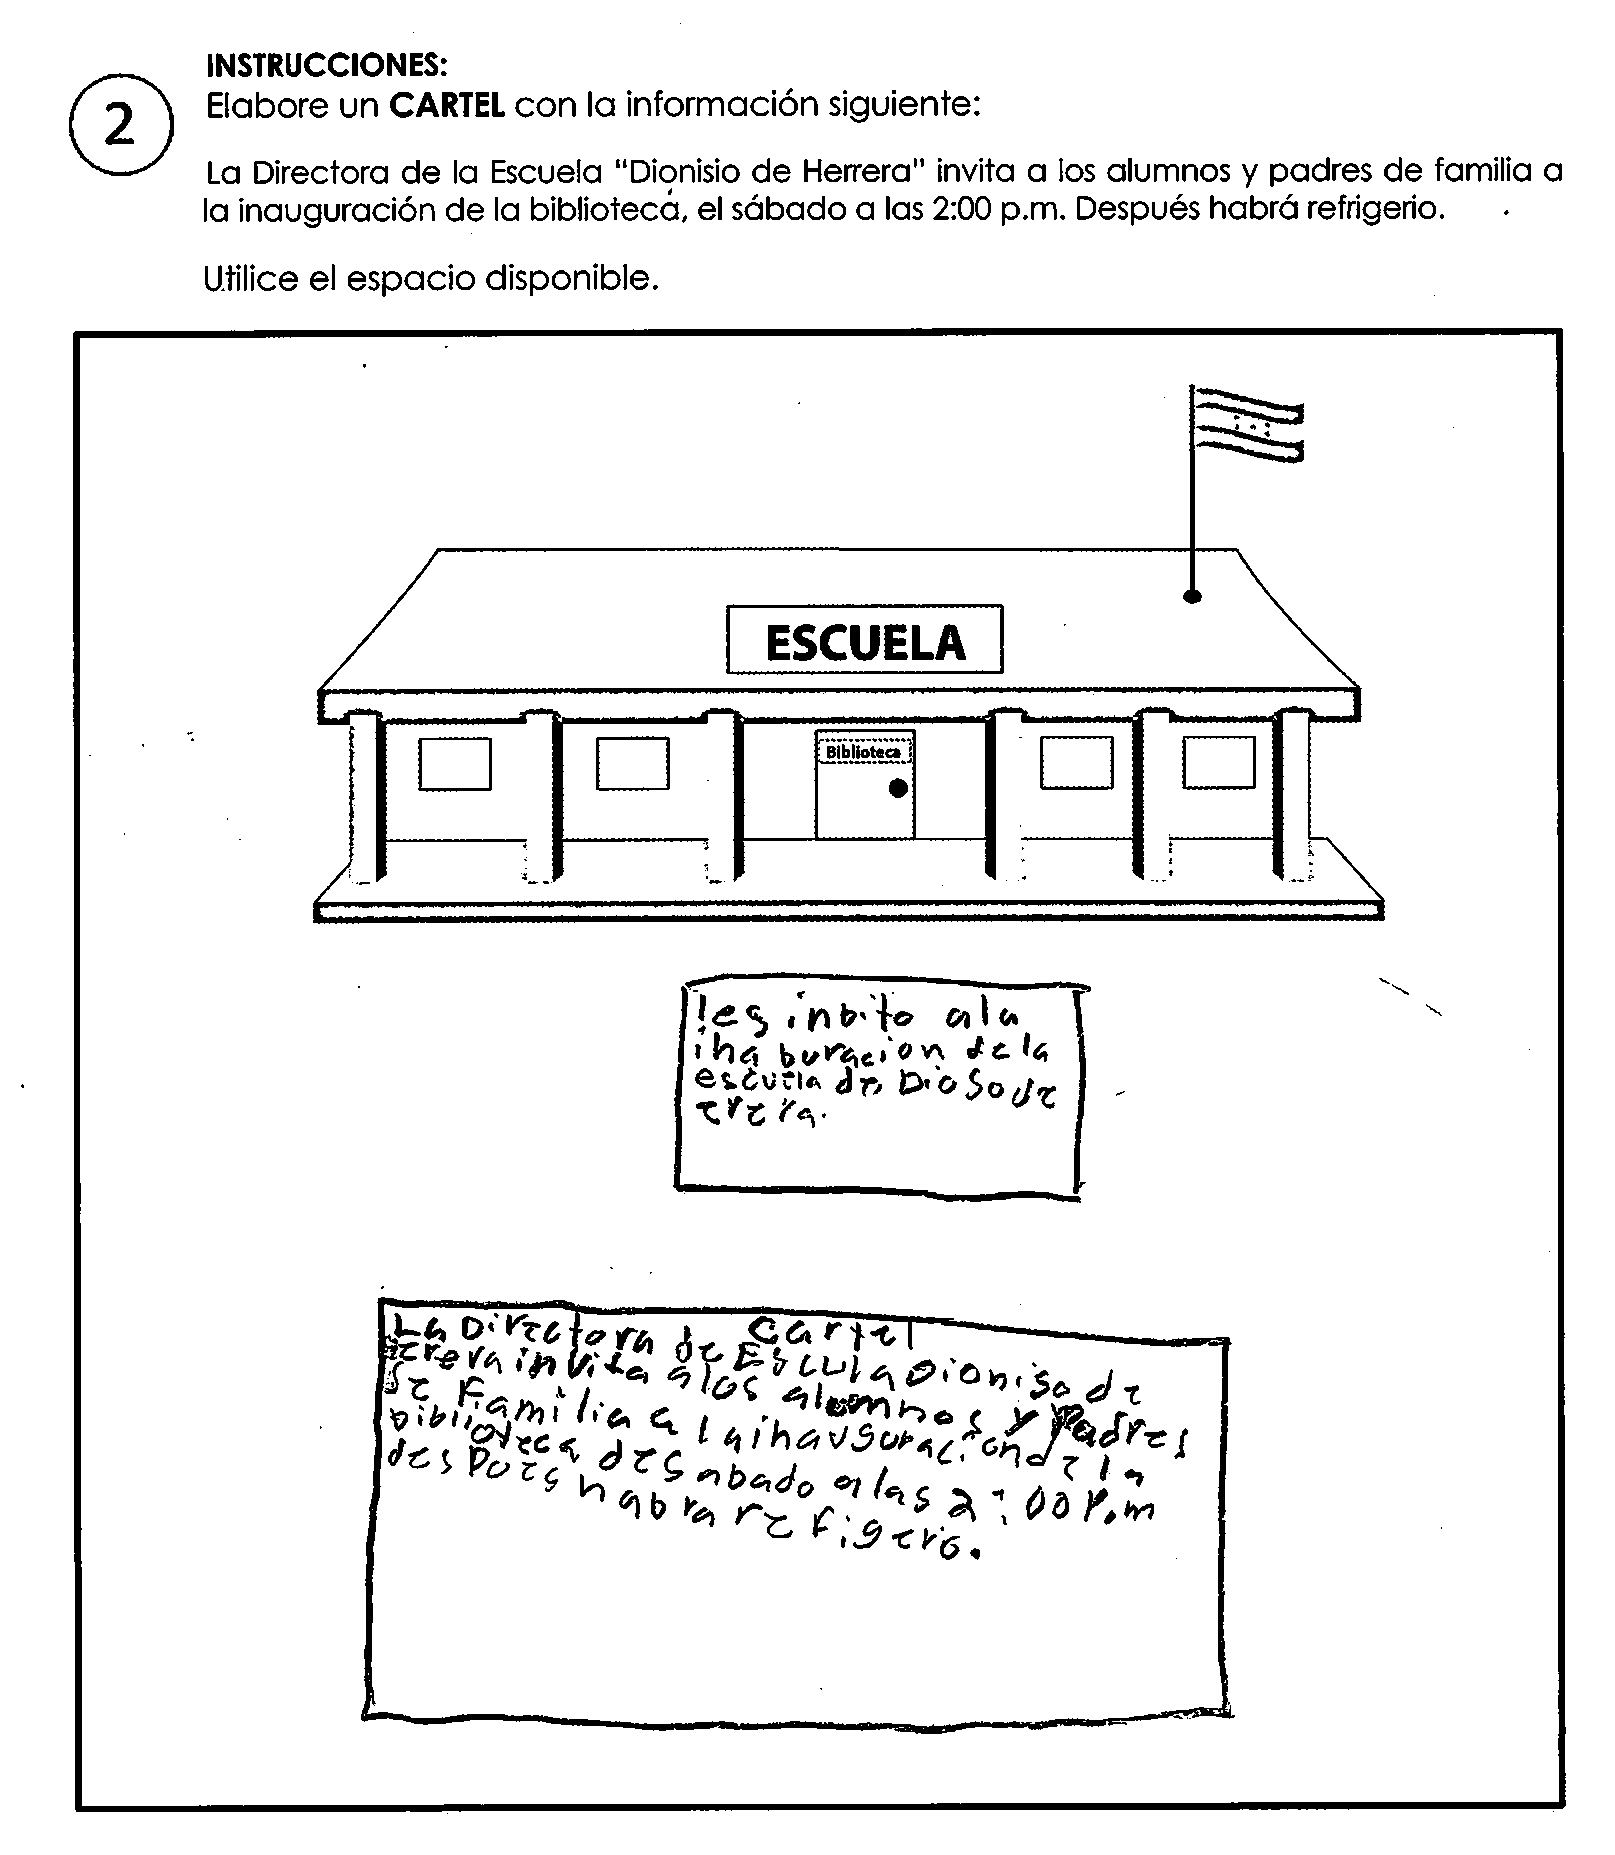 INSTRUCCIONES:
2
Elabore un CARTEL con la información siguiente:
La Directora de la Escuela "Dionisio de Herrera" invita a los alumnos y padres de familia a
la inauguración de la biblioteca, el sábado a las 2:00 p.m. Después habrá refrigerio.
Utilice el espacio disponible.
ESCUELA
Biblioteca
les inbito a la
ihaburacion de la
escuela de Dioso de
erera.
Cartel
La Directora de Escula Dioniso de
erera invita a los alumnos y padres
de Familia a la ihauguracion de la
biblioteca de sabado a las 2:00 P.m
despoes habra refigerio.